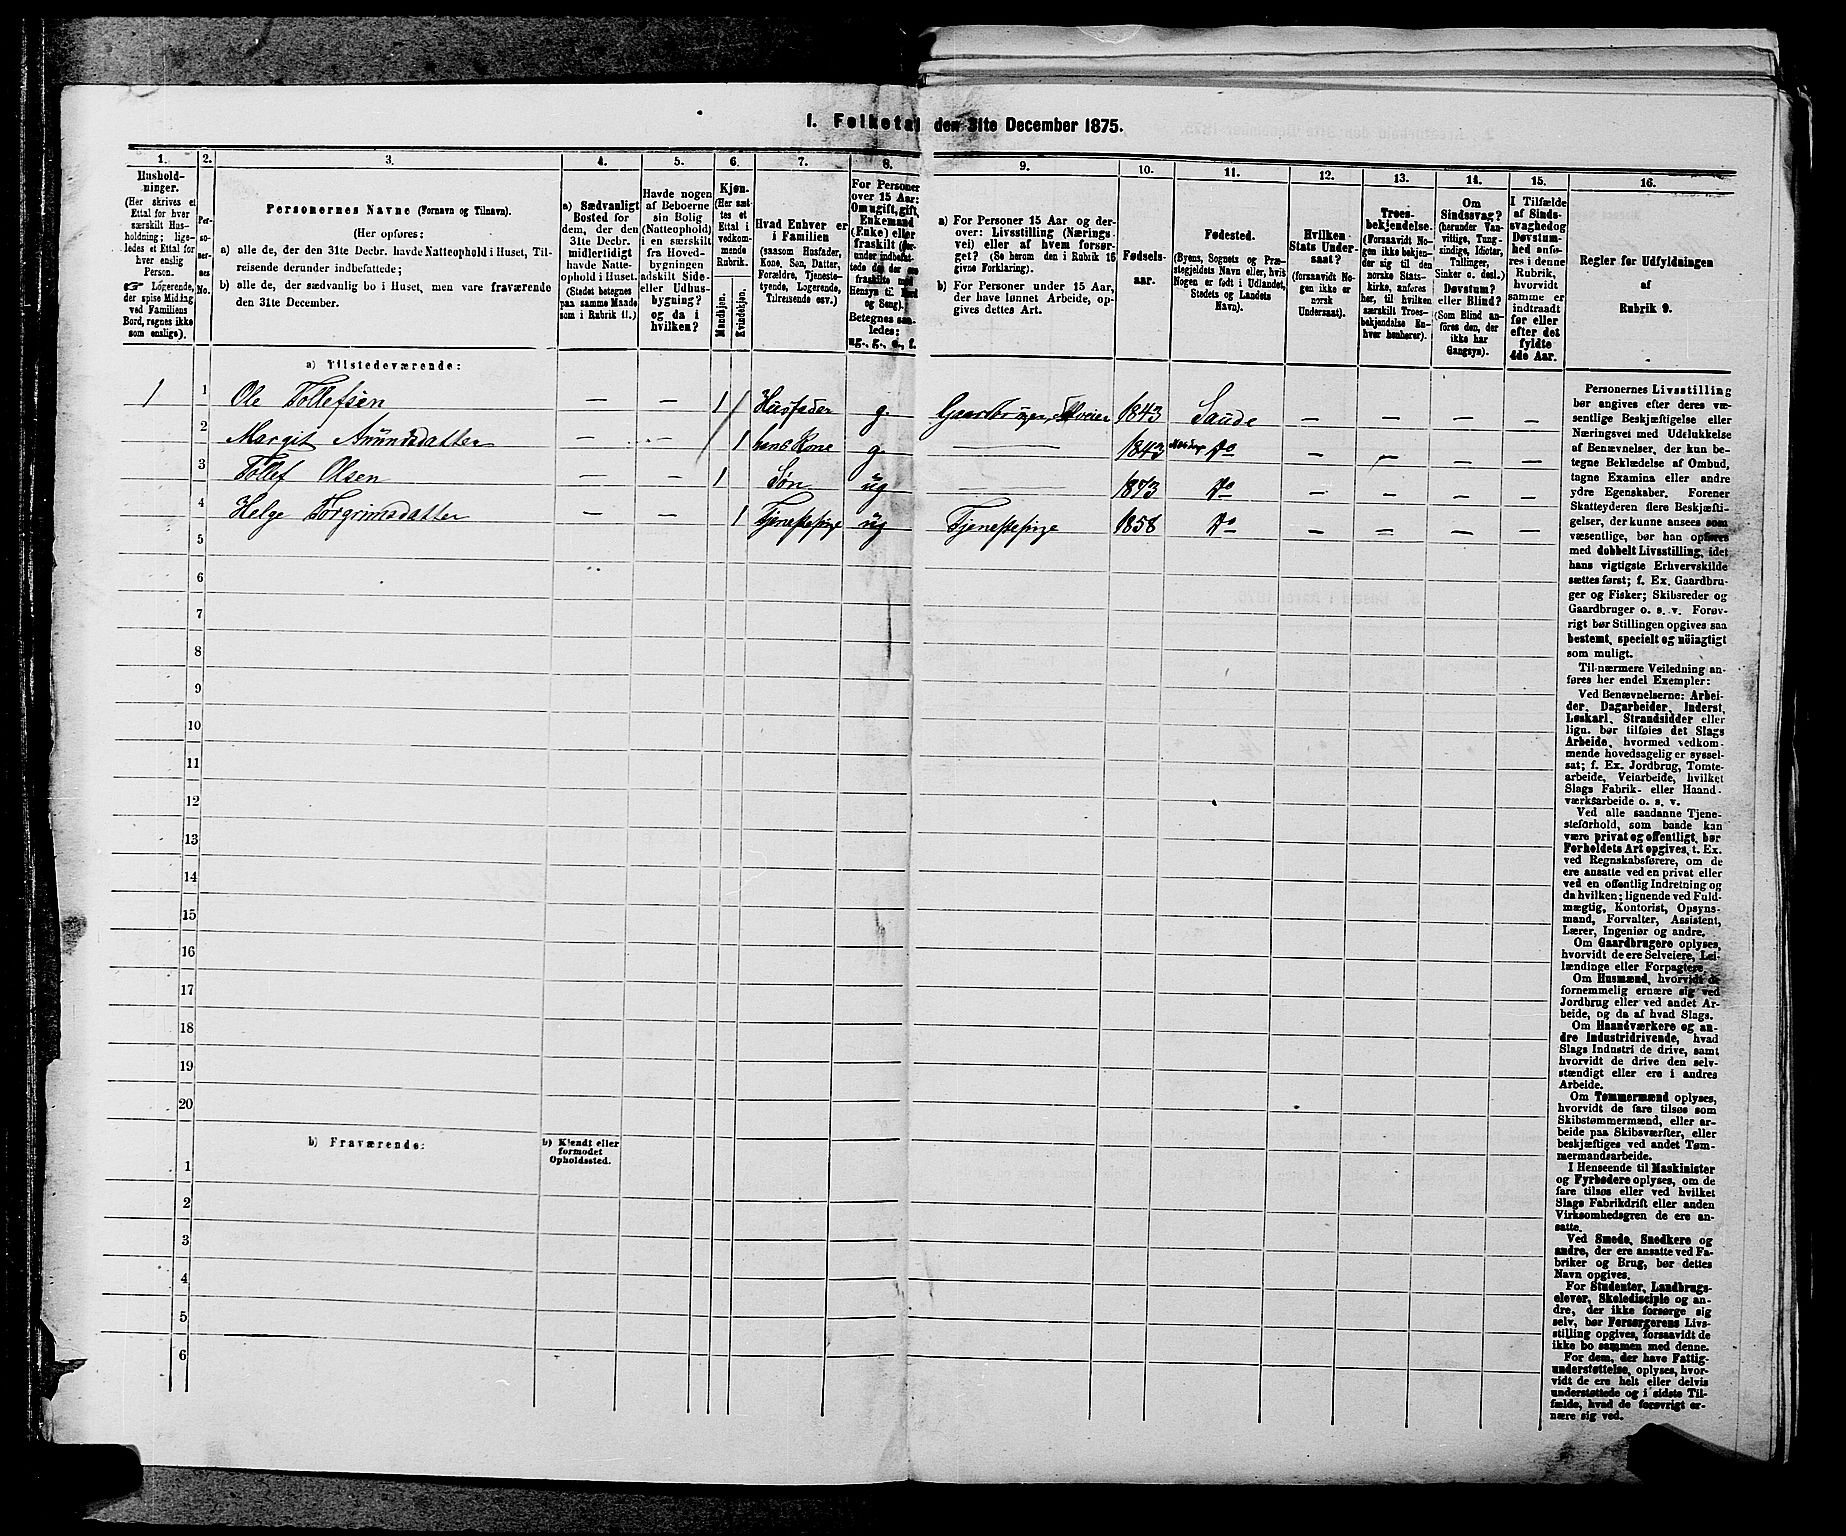 1. Folketal den 31te December 1875.
1.
Hushold-
ninger.
(Her skrives et
Ettal for hver
særskilt Hus-
holdning; lige-
ledes et Ettal for
hver enslig
Person.
☞ Logerende,
der spise Middag
ved Familiens
Bord, regnes ikke
som enslige).
2.
Per-
so-
ner-
nes
No.
3.
Personernes Navne (Fornavn og Tilnavn).
(Her opføres:
a) alle de, der den 31te Decbr. havde Natteophold i Huset, Til-
reisende derunder indbefattede;
b) alle de, der sædvanlig bo i Huset, men vare fraværende
den 31te December.
4.
a) Sædvanligt
Bosted for
dem, der den
31te Decbr.
midlertidigt
havde Natte-
ophold i Huset.
(Stedet betegnes
paa samme Maade
som i Rubrik 11.)
5.
Havde nogen
af Beboerne
sin Bolig
(Natteophold)
i en særskilt
fra Hoved-
bygningen
adskilt Side-
eller Udhus-
bygning?
og da i
hvilken?
6.
Kjøn.
(Her sæt-
tes et
Ettal i
vedkom-
mende
Rubrik.
Mandkjøn.
Kvindekjøn.
7.
Hvad Enhver er
i Familien
(saasom Husfader,
Kone, Søn, Datter,
Forældre, Tjeneste-
tyende, Logerende,
Tilreisende osv.)
8.
For Personer
over 15 Aar:
Om ugift, gift,
Enkemand
(Enke) eller
fraskilt (der-
under indbefat-
tede de, der ere
fraskilte med
Hensyn til Bord
og Seng).
Betegnes saa-
ledes:
ug., g., e., f.
9.
a) For Personer 15 Aar og der-
over: Livsstilling (Nærings-
vei) eller af hvem forsør-
get? (Se herom den i Rubrik 16
givne Forklaring).
b) For Personer under 15 Aar,
der have lønnet Arbeide, op-
gives dettes Art.
10.
Fødsels-
aar.
11.
Fødested.
(Byens, Sognets og Præ-
stegjeldets Navn eller, hvis
Nogen er født i Udlandet,
Stedets og Landets
Navn).
12.
Hvilken
Stats Under-
saat?
(forsaavidt No-
gen ikke er
norsk
Undersaat).
13.
Troes-
bekjendelse.
(Forsaavidt No-
gen ikke bekjen-
der sig til den
norske Stats-
kirke, anføres
her, til hvilken
særskilt Troes-
bekjendelse En-
hver henhører).
14.
Om
Sindssvag?
(herunder Van-
vittige, Tung-
sindige, Idioter,
Tallinger,
Sinker o. desl.)
Døvstum?
eller Blind?
(Som Blind an-
føres den, der
ikke har
Gangsyn).
15.
I Tilfælde
af Sinds-
svaghed og
Døvstum-
hed anfø-
res i denne
Rubrik,
hvorvidt
samme er
indtraadt
før eller
efter det
fyldte
4de Aar.
16.
Regler for Udfyldningen
af
Rubrik 9.
a) Tilstedeværende:
1 1 Ole Tollefsen — — 1 Husfader g. Gaardbruger, Selveier 1843 Saude — — — —
2 Margit Amundsdatter — — 1 hans Kone g. — 1843 Do — — — —
3 Tollef Olsen — — 1 Søn ug — 1873 Do — — — —
4 Helge Torgrimsdatter — — 1 Tjenestepige ug Tjenestepige 1858 Do — — — —
5
6
7
8
9
10
11
12
13
14
15
16
17
18
19
20
b) Fraværende:
b) Kjendt eller
formodet
Opholdssted.
1
2
3
4
5
6
Personernes Livsstilling
bør angives efter deres væ-
sentlige Beskjæftigelse eller
Næringsvei med Udelukkelse
af Benævnelser, der kun be-
tegne Beklædelse af Ombud,
tagne Examina eller andre
ydre Egenskaber. Forener
Skatteyderen flere Beskjæfti-
gelser, der kunne ansees som
væsentlige, bør han opføres
med dobbelt Livsstilling, idet
hans vigtigste Erhvervskilde
sættes først; f. Ex. Gaardbru-
ger og Fisker; Skibsreder og
Gaardbruger o. s. v. Forøv-
rigt bør Stillingen opgives saa
bestemt, specielt og nöiagtigt
som muligt.
Til nærmere Veiledning an-
føres her endel Exempler:
Ved Benævnelserne: Arbei-
der, Dagarbeider, Inderst,
Løskarl, Strandsidder eller
lign. bør tilføies det Slags
Arbeide, hvormed vedkom-
mende hovedsagelig er syssel-
sat; f. Ex. Jordbrug, Tomte-
arbeide, Veiarbeide, hvilket
Slags Fabrik- eller Haand-
værksarbeide o. s. v.
Ved alle saadanne Tjene-
steforhold, som baade kan
være privat og offentligt, bør
Forholdets Art opgives, t. Ex.
ved Regnskabsførere, om de
ere ansatte ved en privat eller
ved en offentlig Indretning og
da hvilken; lignende ved Fuld-
mægtig, Kontorist, Opsyns-
mand, Forvalter, Assistent,
Lærer, Ingeniør og andre.
Om Gaardbrugere oplyses,
hvorvidt de ere Selveiere, Lei-
lændinge eller Forpagtere.
Om Husmænd, hvorvidt de
fornemmelig ernære sig ved
Jordbrug eller ved andet Ar-
beide, og da af hvad Slags.
Om Haandværkere og an-
dre Industridrivende, hvad
Slags Industri de drive, samt
hvorvidt de drive den selv-
stændigt eller ere i andres
Arbeide.
Om Tømmermænd oplyses,
hvorvidt de fare tilsøs som
Skibstømmermænd, eller ar-
beide paa Skibsværfter, eller
beskjæftiges ved andet Tøm-
mermandsarbeide.
I Henseende til Maskinister
og Fyrbødere oplyses, om de
fare tilsøs eller ved hvilket
Slags Fabrikdrift eller anden
Virksomhedsgren de ere an-
satte.
Ved Smede, Snedkere og
andre, der ere ansatte ved Fa-
briker og Brug, bør dettes
Navn opgives.
For Studenter, Landbrugs-
elever, Skoledisciple og an-
dre, der ikke forsørge sig
selv, bør Forsørgerens Livs-
stilling opgives, forsaavidt de
ikke bo sammen med denne.
For dem, der have Fattig-
understøttelse, oplyses, hvor-
vidt de ere helt eller delvis
understøttede og i sidste Til-
fælde, hvad de forøvrigt er-
nære sig ved.